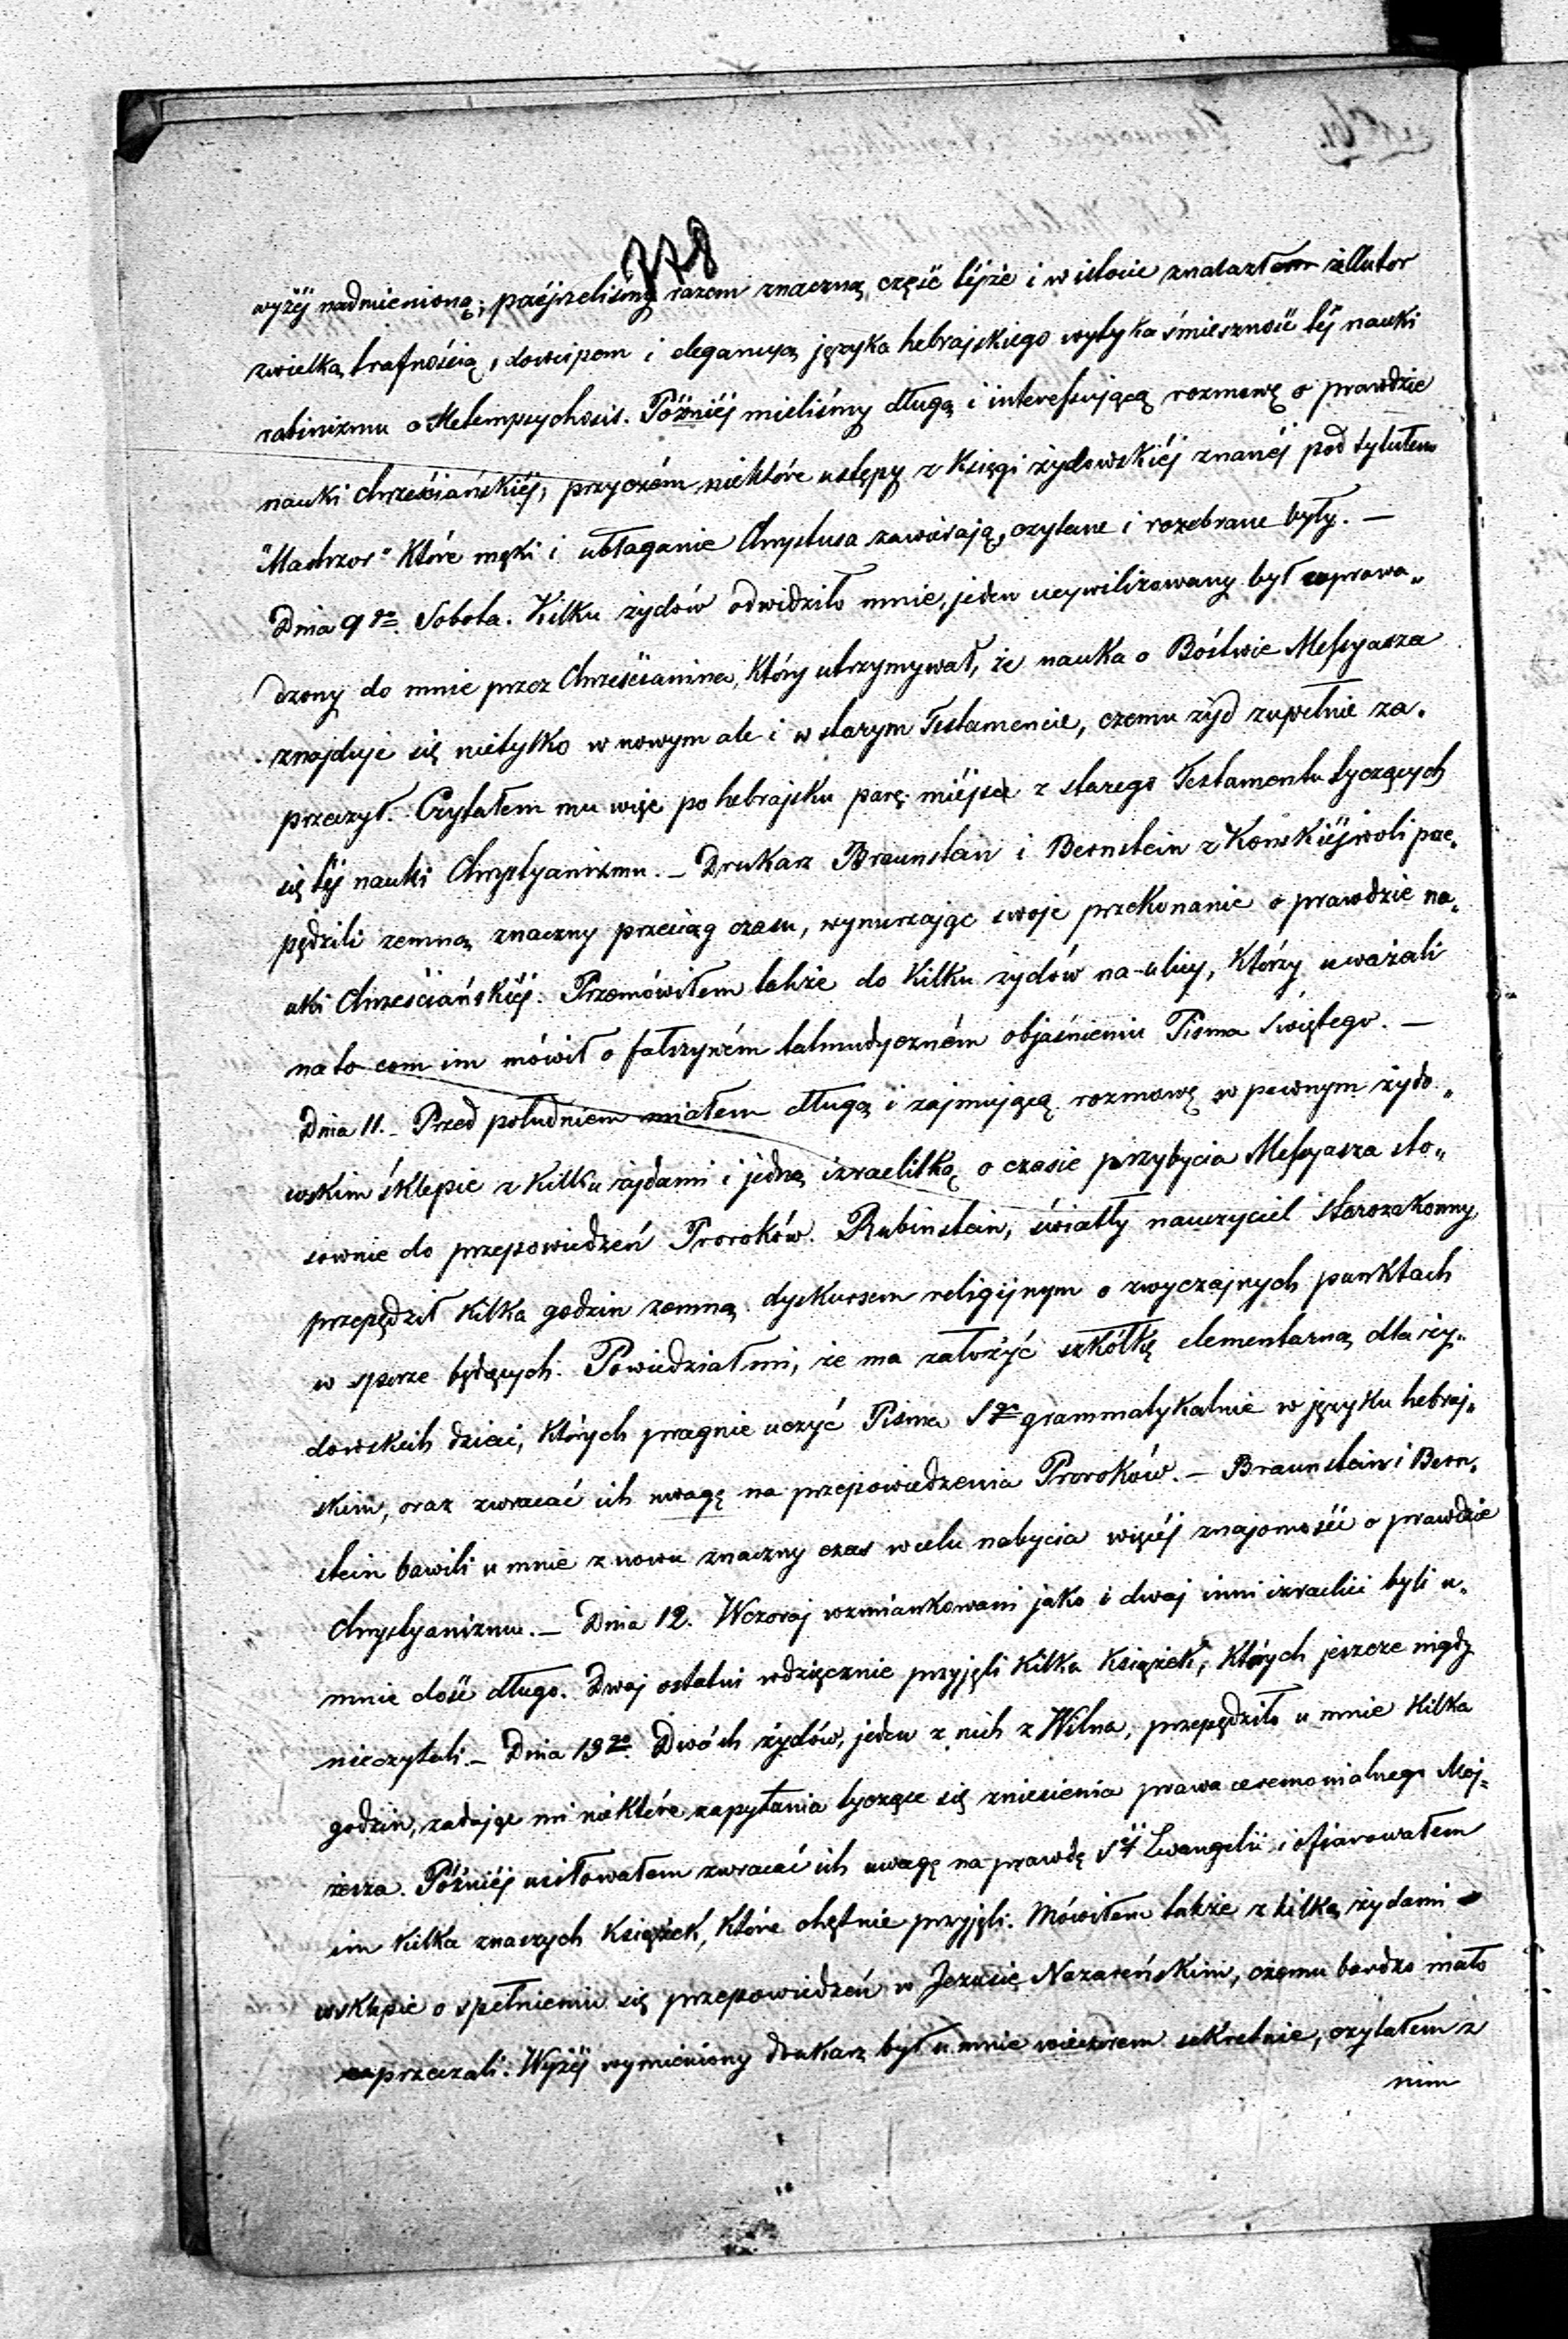 778
wyżéj nadmienioną; przéjrzeliśmy razem znaczną część téjże i w istocie znalazłem żeAutor
zwielką trafnością, dowcipem i elegancyą języka hebrajskiego wytyka śmieszność téj nauki
rabinizmu o Metempsychosis. Póżniéj mieliśmy długą i interessującą rozmowę o prawdzie
nauki chrześciańskiéj, przyczém niektóre ustępy z Księgi żydowskiéj znanéj pod tytułem
"Machzor" Które męki i ubłaganie Chrystusa zawierają, czytane i rozebrane były. —
Dnia 9go. Sobota. Kilku żydów odwidziło mnie, jeden ucywilizowany był zaprowa„
dzony do mnie przez Chrześcianina, Który utrzymywał, że nauka o Bóstwie Messyasza
znajduje się nietylko w nowym ale i w starym Testamencie, czemu żyd zupełnie za„
przeczył. Czytałem mu więc po hebrajsku parę miéjsc z starego Testamentu tyczących
się téj nauki Chrystyanizmu. – Drukarz Braunstein i Bernstein z Końskiéjwoli prze„
pędzili zemną znaczny przeciąg czasu, wynurzając swoje przekonanie o prawdzie na„
uki Chrześciańskiéj. Przemówiłem także do Kilku żydów na ulicy, Którzy uważali
na to com im mówił o fałszywém talmudyczném objaśnieniu Pisma Świętego. —
Dnia 11. – Przed południem miałem długą i zajmującą rozmowę w pewnym żydo„
wskim sklepie z Kilku żydami i jedną izraelitką o czasie przybycia Messyasza sto„
sownie do przepowiedzeń Proroków. Rubinstein, światły nauczyciel Starozakonny,
przepędził Kilka godzin zemną dyskursem religijnym o zwyczajnych punktach
w sporze będących. Powiedział mi, że ma założyć szkółkę elementarną dla ży„
dowskich dzieci, Których pragnie uczyć Pisma Sgo grammatykalnie w języku hebraj„
skim, oraz zwracać ich uwagę na przepowiedzenia Proroków. – Braunstein i Bern„
stein bawili u mnie znowu znaczny czas w celu nabycia więcéj znajomości o prawdzie
Chrystyanizmu. – Dnia 12. Wczoraj wzmiankowani jako i dwaj inni izraelici byli u„
mnie dość długo. Dwaj ostatni wdzięcznie przyjęli Kilka Książek, Których jeszcze nigdy
nieczytali – Dnia 13go. Dwóch żydów, jeden z nich z Wilna, przepędziło u mnie Kilka
godzin, zadając mi niektóre zapytania tyczące się zniesienia prawa ceremonialnego Moj„
żesza. Póżniéj usiłowałem zwracać ich uwagę na prawdę Séj Ewangelii i ofiarowałem
im Kilka znaczych Książek, Które chętnie przyjęli. Mówiłem także z kilką żydami
wsklepie o spełnieniu się przepowiedzeń w Jezusie Nazareńskim, czemu bardzo mało
zaprzeczali. Wyżéj wymieniony drukarz był u mnie wieczorem sekretnie, czytałem z
nim